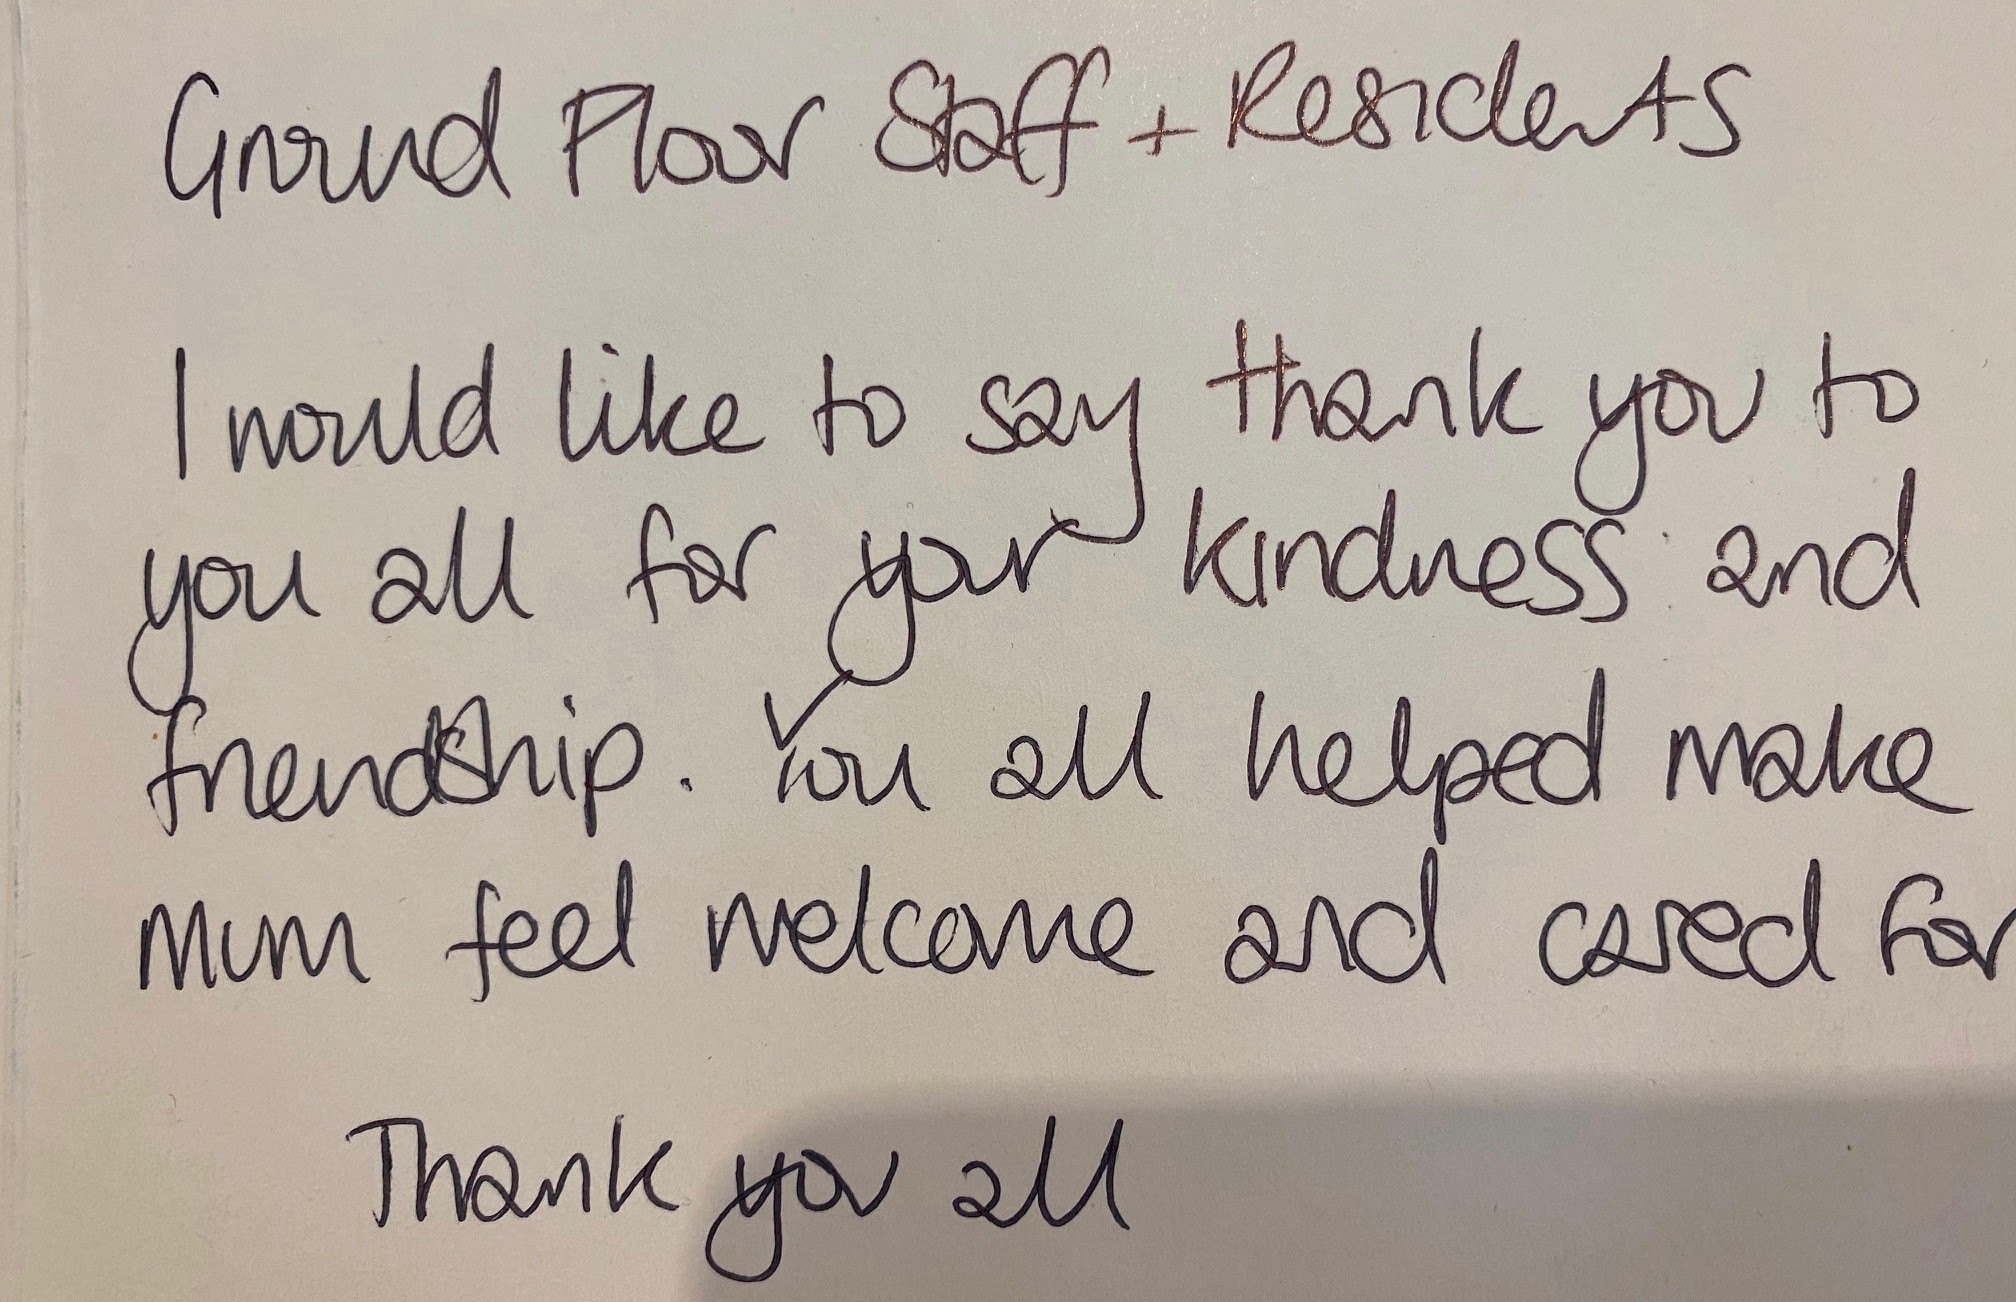 Ground Floor Staff + Residents
I would like to say thank you to
you all for your kindness and
friendship. You all helped make
Mum feel welcome and cared for
Thank you all